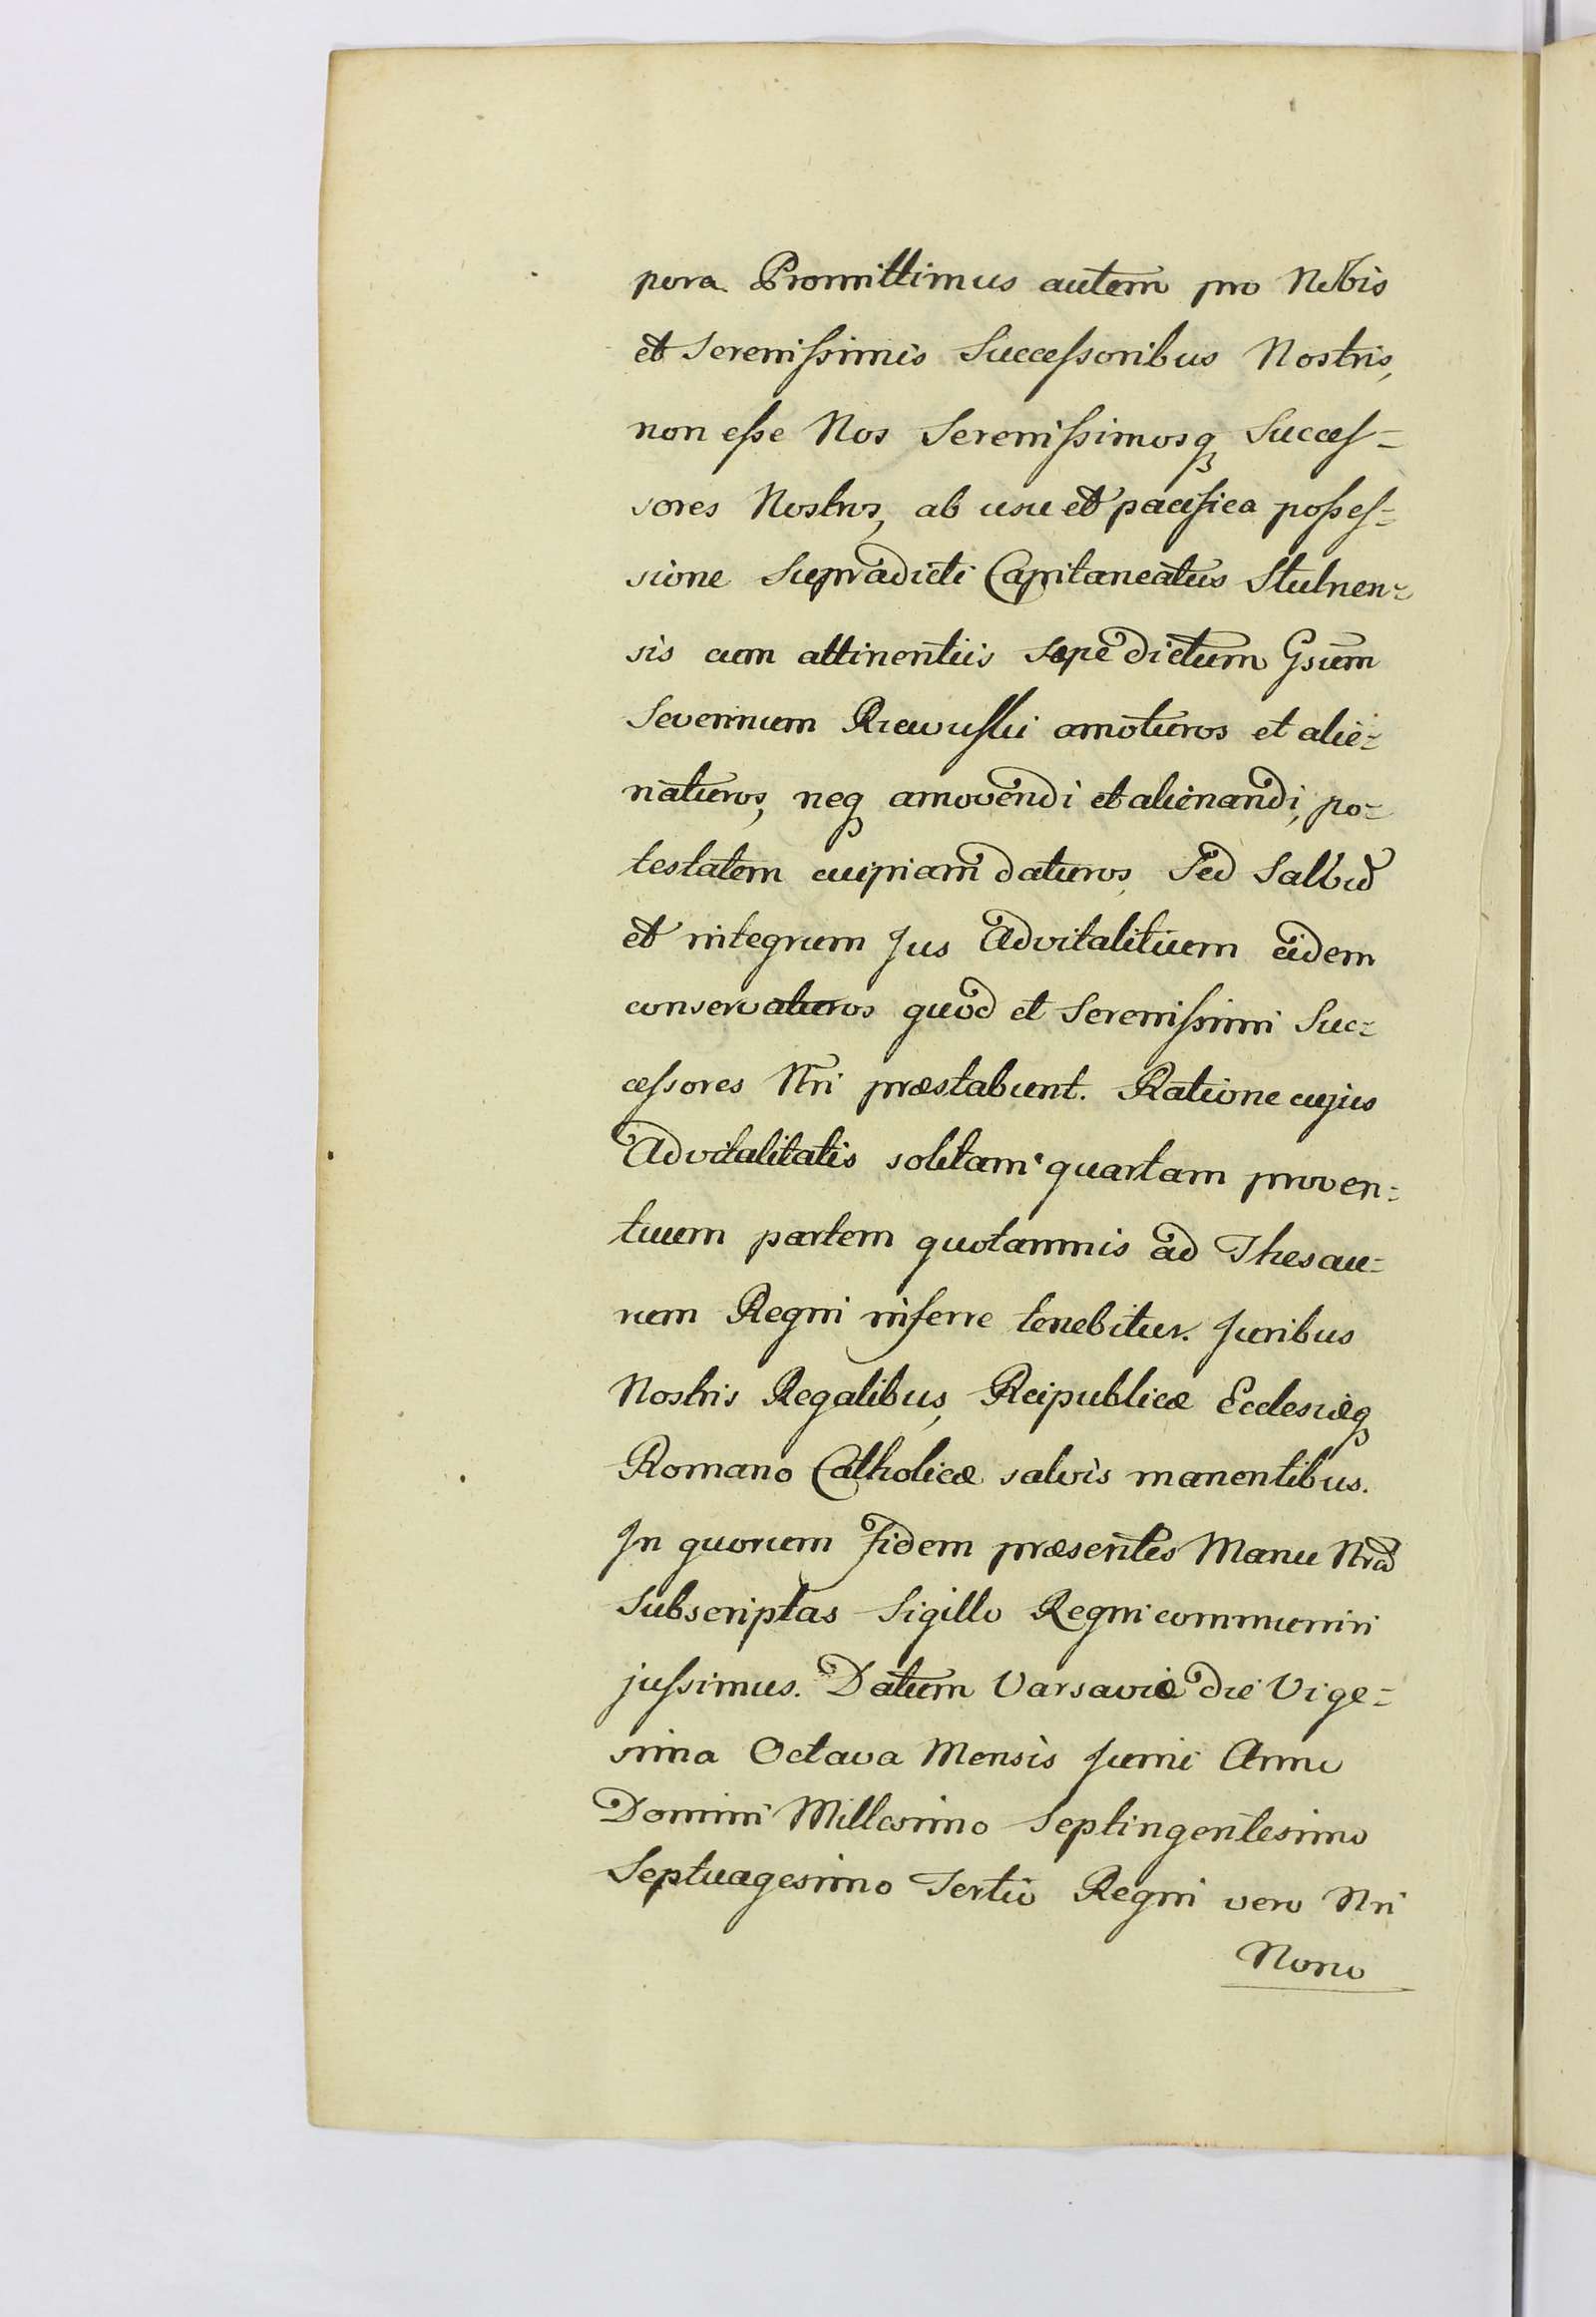 pora. Promittimus autem pro Nobis
et Serenissimis Successoribus Nostris,
non esse Nos Serenissimosq Succes=
sores Nostros, ab usu et pacifica posses=
sione Supradicti Capitaneatus Stulnen=
sis cum attinentiis sæpe dictum Gsum
Severinum Rzewuski amoturos et alie=
naturos, neq amovendi et alienandi, po=
testatem cuipiam daturos, Sed Salvũ
et integrum Jus Advitalitium eidem
conservaturos quod et Serenissimi Suc=
cessores Nri præstabunt. Ratione cujus
Advitalitatis solitam quartam proven=
tuum partem quotannis ad Thesau=
rum Regni inferre tenebitur. Juribus
Nostris Regalibus, Reipublicæ Ecclesiæq
Romano Catholicæ salvis manentibus.
In quorum Fidem præsentes Manu Nrã
Subscriptas Sigillo Regni communiri
jussimus. Datum Varsaviæ die Vige=
sima Octava Mensis Junii Anno
Domini Millesimo Septingentesimo
Septuagesimo Tertio Regni vero Nri
Nono